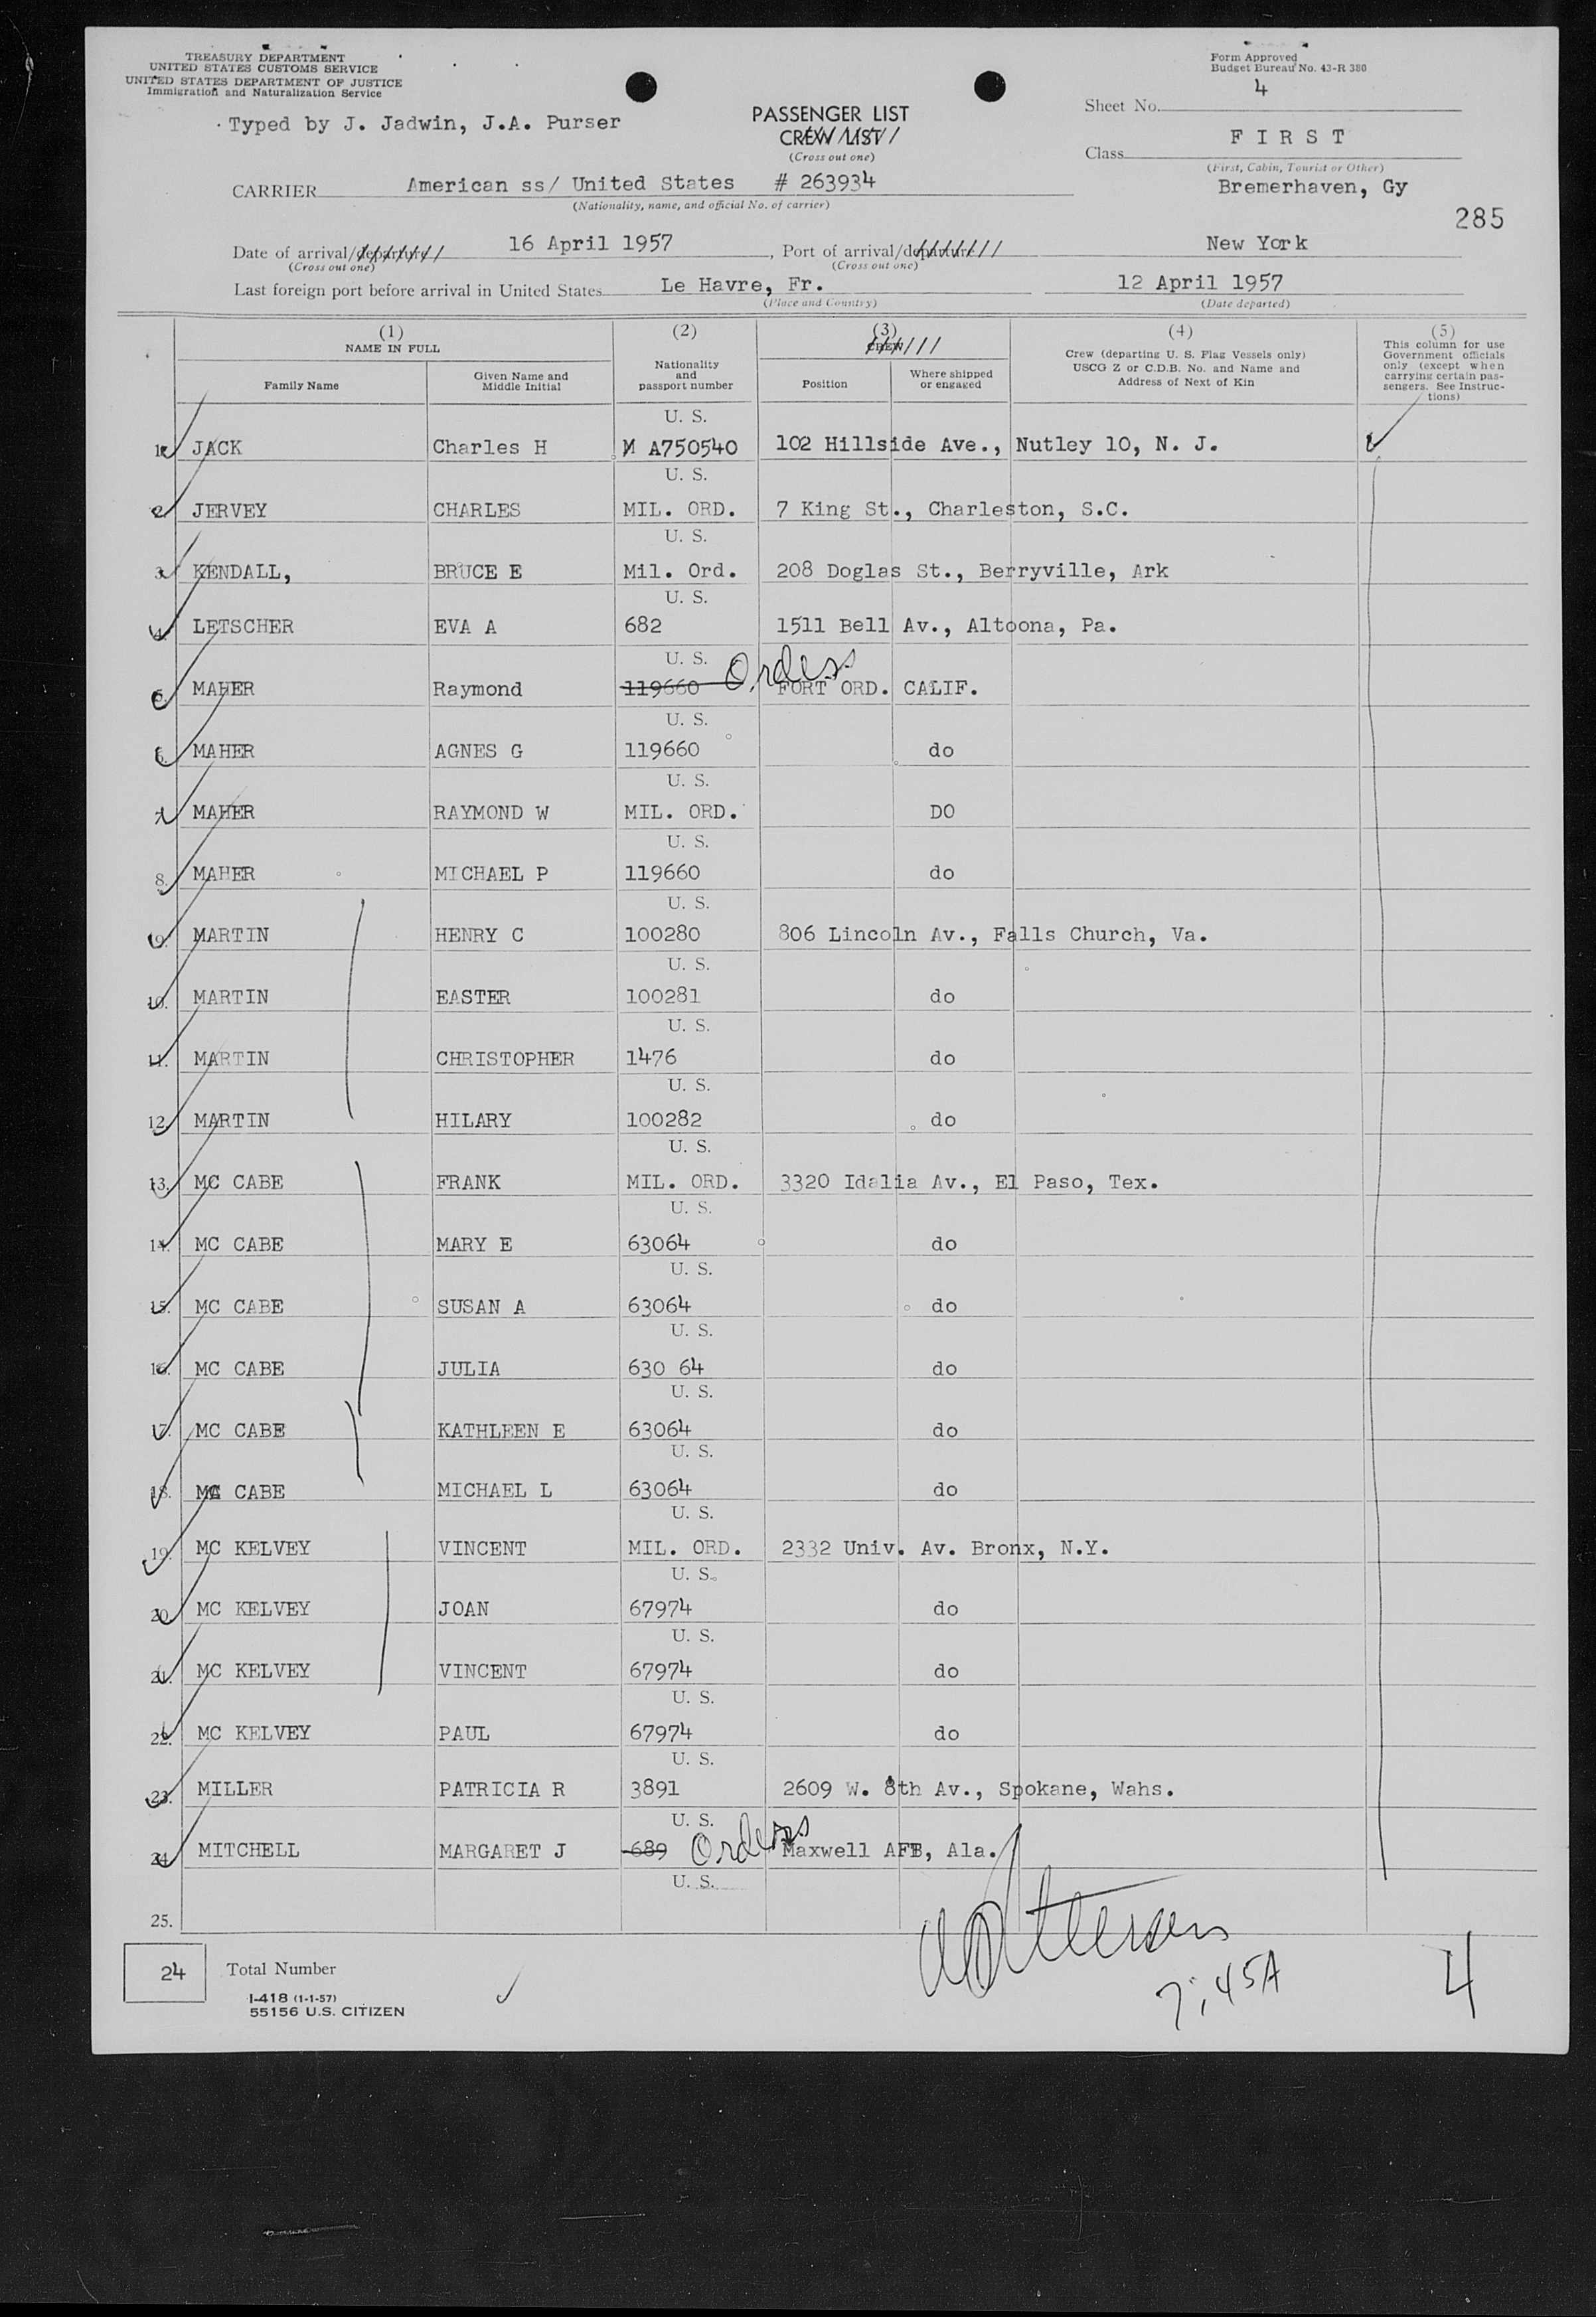 TREASURY DEPARTMENT
UNITED STATES CUSTOMS SERVICE
UNITED STATES DEPARTMENT OF JUSTICE
Immigration and Naturalization Service
Form Approved
Budget Bureau No. 43-R 380
Typed by J. Jadwin, J.A. Purser
PASSENGER LIST
CREW LIST
(Cross out one)
Sheet No. 4
Class FIRST
(First, Cabin, Tourist or Other)
CARRIER American ss/ United States # 263934
(Nationality, name, and official No. of carrier)
Bremerhaven, Gy
285
Date of arrival/departure 16 April 1957, Port of arrival/departure New York
(Cross out one) (Cross out one)
Last foreign port before arrival in United States Le Havre, Fr. 12 April 1957
(Place and Country) (Date departed)
(1) (2) (3) (4) (5)
NAME IN FULL
Family Name
Given Name and Middle Initial
Nationality and passport number
CREW
Position
Where shipped or engaged
Crew (departing U. S. Flag Vessels only) USCG Z or C.D.B. No. and Name and Address of Next of Kin
This column for use Government officials only (except when carrying certain passengers. See Instructions)
U. S.
1. JACK Charles H M A750540 102 Hillside Ave., Nutley 10, N. J.
U. S.
2. JERVEY CHARLES MIL. ORD. 7 King St., Charleston, S.C.
U. S.
3. KENDALL, BRUCE E Mil. Ord. 208 Doglas St., Berryville, Ark
U. S.
4. LETSCHER EVA A 682 1511 Bell Av., Altoona, Pa.
U. S.
5. MAHER Raymond 119660 Orders FORT ORD. CALIF.
U. S.
6. MAHER AGNES G 119660 do
U. S.
7. MAHER RAYMOND W MIL. ORD. DO
U. S.
8. MAHER MICHAEL P 119660 do
U. S.
9. MARTIN HENRY C 100280 806 Lincoln Av., Falls Church, Va.
U. S.
10. MARTIN EASTER 100281 do
U. S.
11. MARTIN CHRISTOPHER 1476 do
U. S.
12. MARTIN HILARY 100282 do
U. S.
13. MC CABE FRANK MIL. ORD. 3320 Idalia Av., El Paso, Tex.
U. S.
14. MC CABE MARY E 63064 do
U. S.
15. MC CABE SUSAN A 63064 do
U. S.
16. MC CABE JULIA 630 64 do
U. S.
17. MC CABE KATHLEEN E 63064 do
U. S.
18. MC CABE MICHAEL L 63064 do
U. S.
19. MC KELVEY VINCENT MIL. ORD. 2332 Univ. Av. Bronx, N.Y.
U. S.
20. MC KELVEY JOAN 67974 do
U. S.
21. MC KELVEY VINCENT 67974 do
U. S.
22. MC KELVEY PAUL 67974 do
U. S.
23. MILLER PATRICIA R 3891 2609 W. 8th Av., Spokane, Wahs.
U. S.
24. MITCHELL MARGARET J 689 Orders Maxwell AFB, Ala.
U. S.
25.
24 Total Number
I-418 (1-1-57)
55156 U.S. CITIZEN
7:45A
4